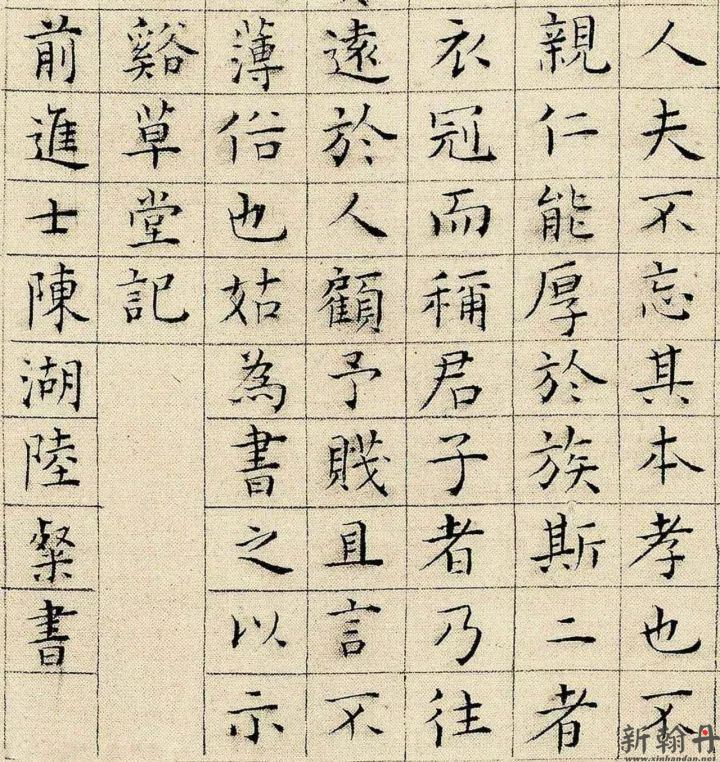 人夫不忘其本孝也不
親仁能厚於族斯二者
衣冠而稱君子者乃往
遠於人顧予賤且言不
薄俗也姑為書之以示
谿草堂記
前進士陳湖陸粲書
新翰丹
www.xinhandan.net